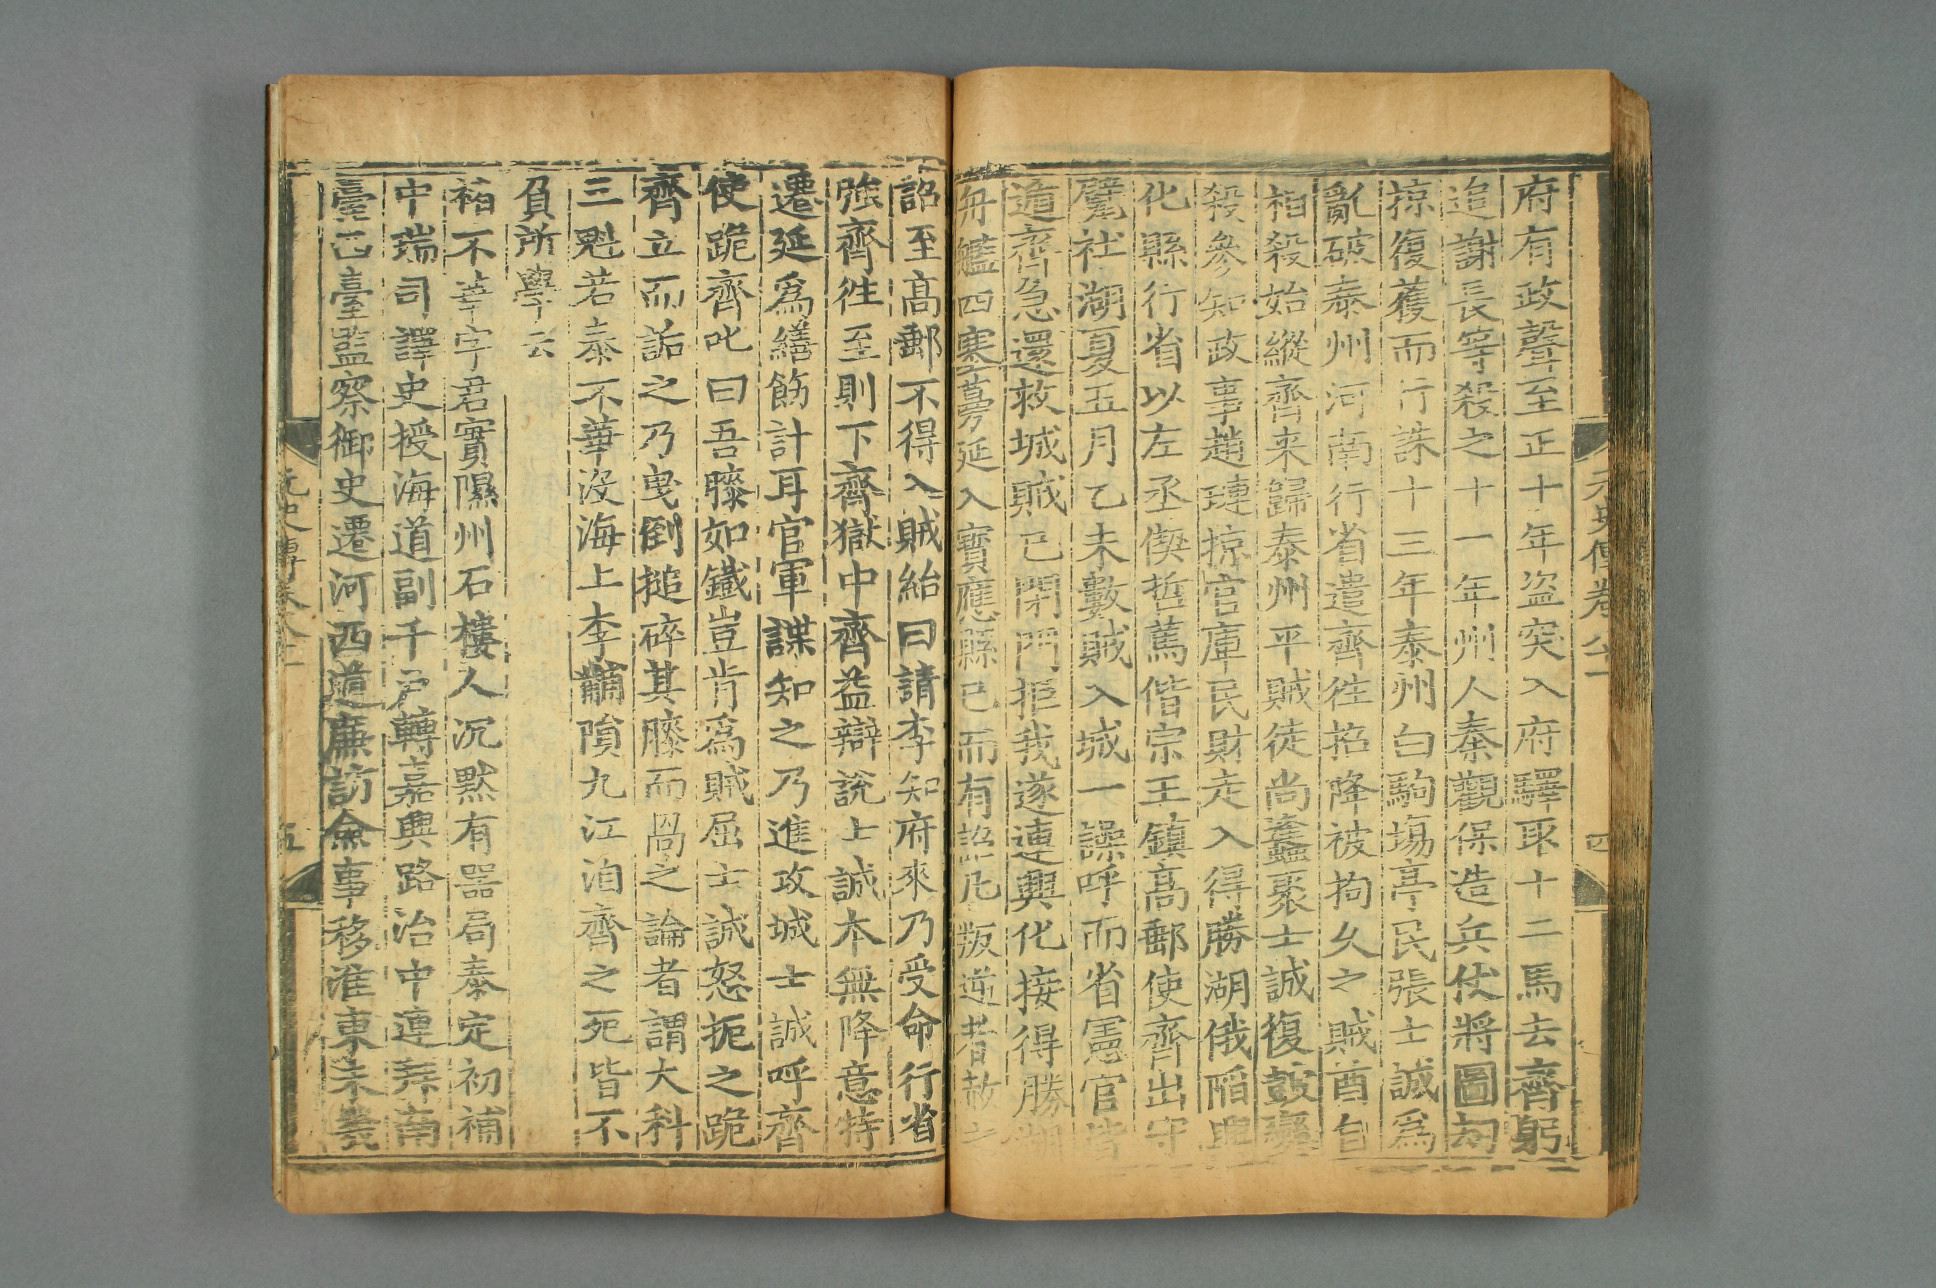 元史傳卷八十一
四
府有政聲至正十年盗突入府驛取十二馬去齊躬
追謝長等殺之十一年州人秦觀保造兵仗將圖刼
掠復獲而行誅十三年泰州白駒場亭民張士誠爲
亂破泰州河南行省遣齊徃招降被拘久之賊酋自
相殺始縱齊来歸泰州平賊徒尚蠭聚士誠復鼓變
殺參知政事趙璉掠官庫民財走入得勝湖俄䧟興
化縣行省以左丞偰哲篤偕宗王鎮高郵使齊出守
甓社湖夏五月乙未數賊入城一譟呼而省憲官皆
遁齊急還救城賊已閉門拒我遂連興化接得勝湖
舟艦四塞蔓延入寶應縣已而有詔凡叛逆者赦之
詔至高郵不得入賊紿曰請李知府來乃受命行省
強齊徃至則下齊獄中齊益辯說士誠本無降意特
遷延爲繕餙計耳官軍諜知之乃進攻城士誠呼齊
使跪齊叱曰吾膝如鐵豈肯爲賊屈士誠怒扼之跪
齊立而詬之乃曵倒搥碎其膝而咼之論者謂大科
三魁若泰不華没海上李黼隕九江洎齊之死皆不
負所學云
褚不華字君實隰州石樓人沉默有器局泰定初補
中瑞司譯史授海道副千户轉嘉興路治中連拜南
臺西臺監察御史遷河西道廉訪僉事移淮東未㡬
元史傳卷八十一
五